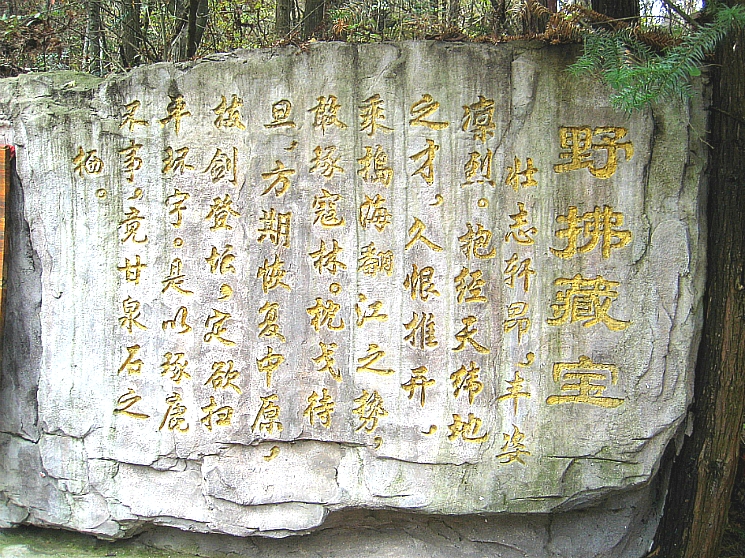 野拂藏宝
壮志轩昂，丰姿
凛烈。抱经天纬地
之才，久恨推开，
乘捣海翻江之势，
敢琢寇林。枕戈待
旦，方期恢复中原，
拔剑登坛，定欲扫
平环宇。是以琢鹿
不事。竟甘泉石之
栖。